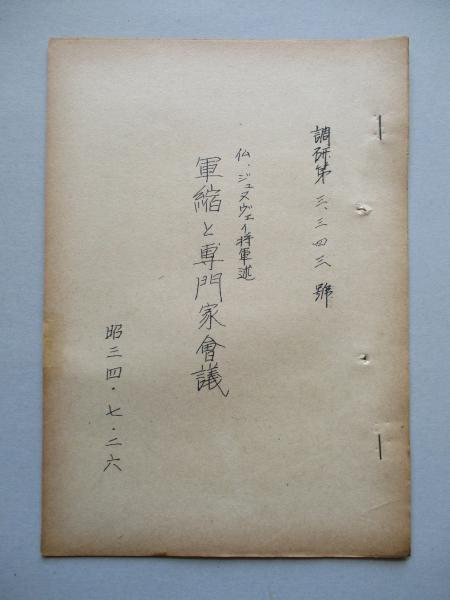 調研第三、三四三號
仏、ジュヌヴェイ将軍述
軍縮と専門家會議
昭三四・七・二六